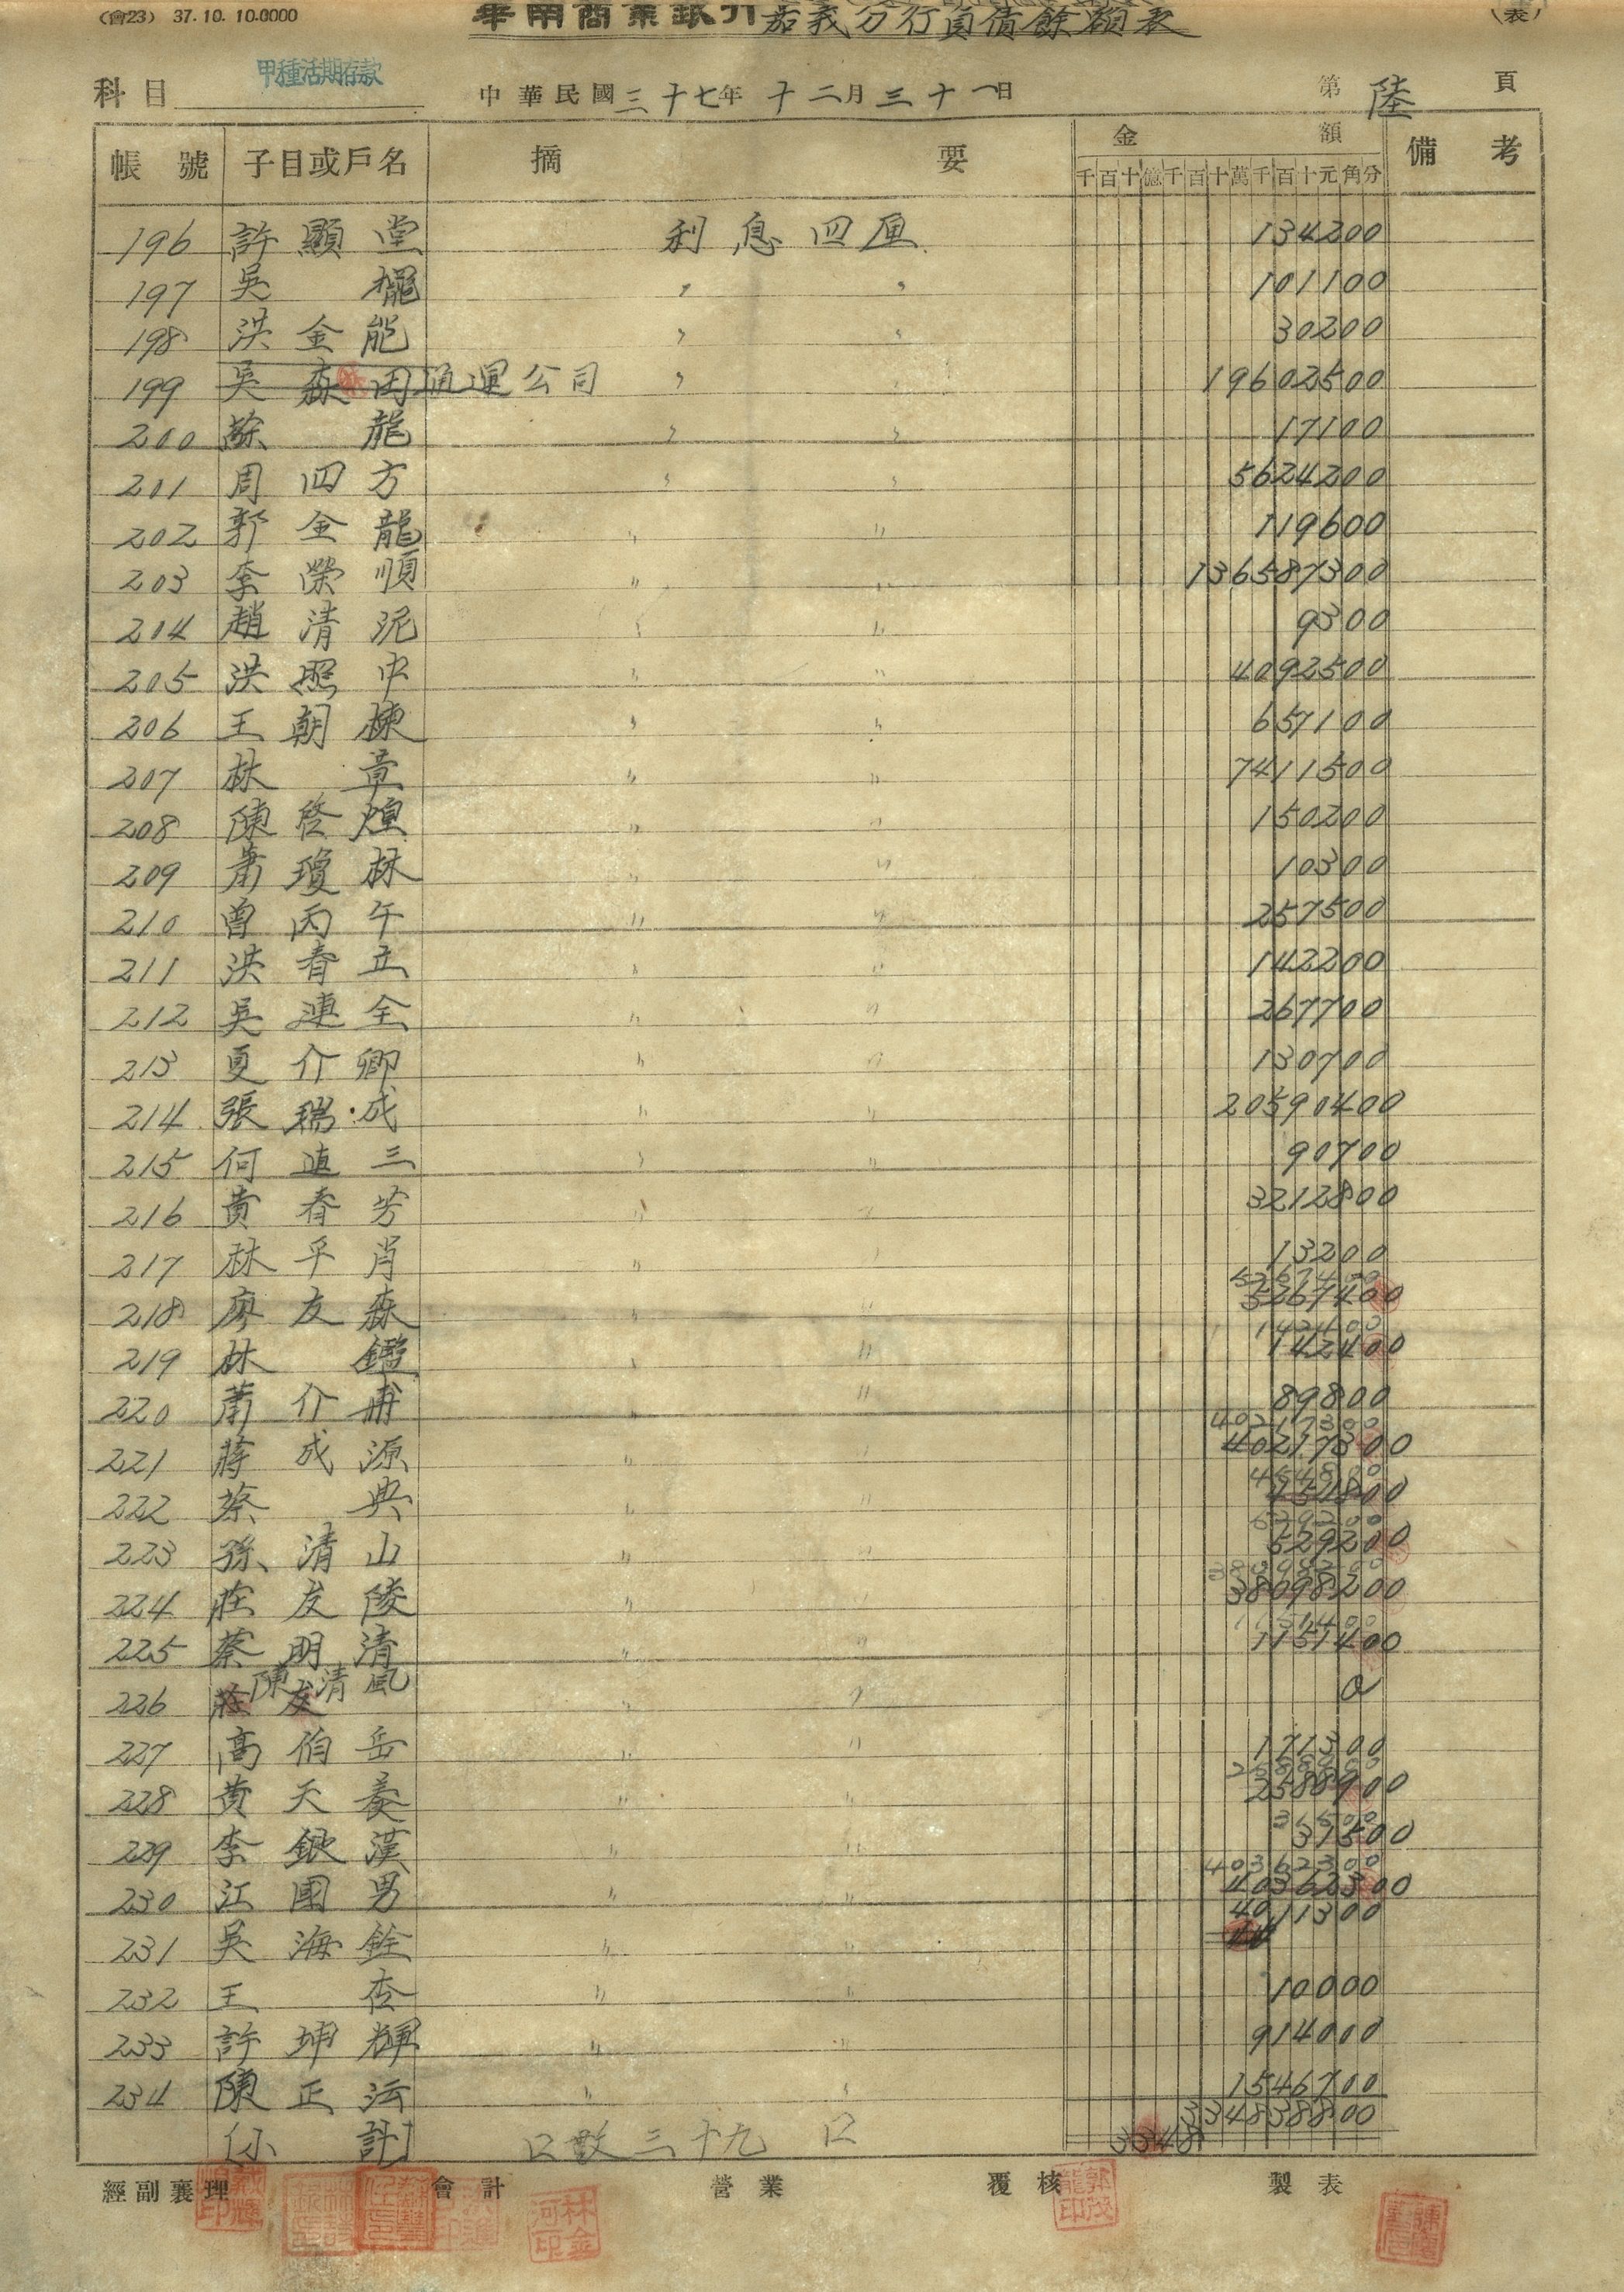 (會23) 37.10.10.0000
華南商業銀行嘉義分行負債餘額表
(表)
科目 甲種活期存款 中華民國三十七年十二月三十一日 第陸頁
帳號 子目或戶名 摘要 金額 備考
千百十億千百十萬千百十元角分
196 許顯堂 利息四厘 134200
197 吳 〃 〃 101100
198 洪金能 〃 〃 30200
199 吳森田 通運公司 〃 19602500
200 龍 〃 〃 17100
201 周四方 〃 〃 5624200
202 郭金龍 〃 〃 119600
203 李榮順 〃 〃 136587300
204 趙清泥 〃 〃 9300
205 洪照中 〃 〃 4092500
206 王朝棟 〃 〃 657100
207 林章 〃 〃 7411500
208 陳啓煌 〃 〃 150200
209 蕭瓊林 〃 〃 10300
210 曾丙午 〃 〃 257500
211 洪春立 〃 〃 142200
212 吳連全 〃 〃 267700
213 夏介卿 〃 〃 130700
214 張瑞成 〃 〃 20590400
215 何直三 〃 〃 90700
216 黃春芳 〃 〃 3212800
217 林平肖 〃 〃 13200
218 廖友森 〃 〃 5267400
5267400
219 林鑑 〃 〃 142400
142400
220 蕭介甫 〃 〃 89800
221 蔣成源 〃 〃 40217300
40217300
222 蔡典 〃 〃 454800
223 孫清山 〃 〃 529200
529200
224 莊友陵 〃 〃 38098200
38098200
225 蔡明清 〃 〃 1151400
1151400
226 莊友 陳清風 〃 〃 0
227 高伯岳 〃 〃 171300
228 黃天養 〃 〃 2588900
2588900
229 李銀漢 〃 〃 31500
31500
230 江國男 〃 〃 40362300
40362300
231 吳海銓 〃 〃 4011300
232 王杏 〃 〃 10000
233 許坤輝 〃 〃 914000
234 陳正沄 〃 〃 1546700
〔小計〕 口數三十九口 334838800
3348
經副襄理 會計 營業 覆核 製表
林金河印